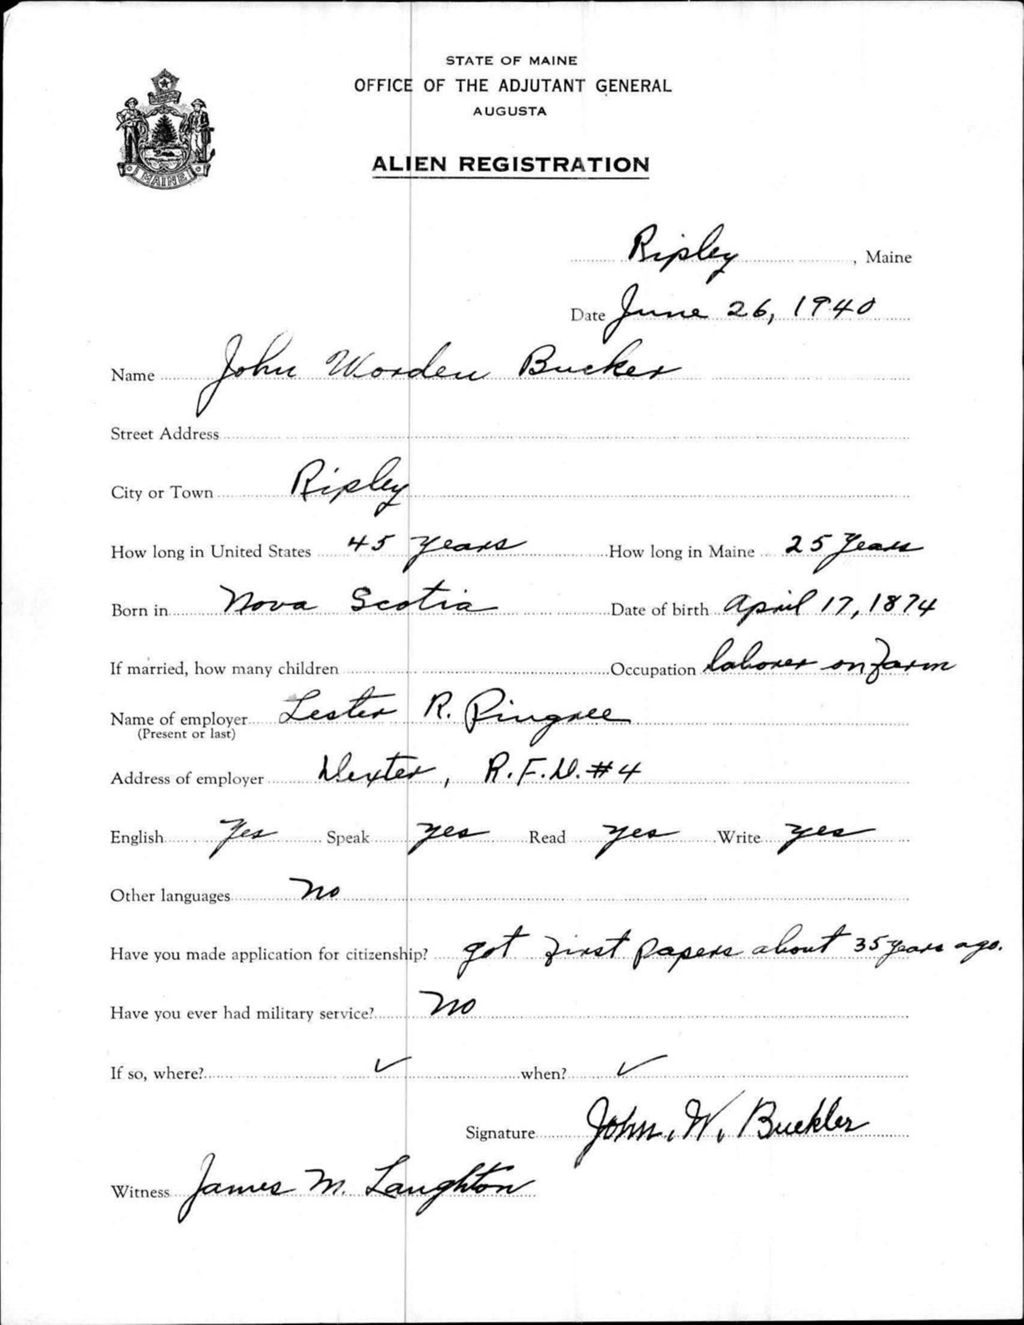 STATE OF MAINE
OFFICE OF THE ADJUTANT GENERAL
AUGUSTA
ALIEN REGISTRATION
MAINE
Ripley, Maine
Date June 26, 1940
Name John Worden Bucker
Street Address
City or Town Ripley
How long in United States 45 years How long in Maine 25 years
Born in Nova Scotia Date of birth April 17, 1874
If married, how many children Occupation laborer on farm
Name of employer Lester R. Pingree
(Present or last)
Address of employer Dexter, R.F.D. #4
English Yes Speak yes Read yes Write yes
Other languages no
Have you made application for citizenship? got first papers about 35 years ago.
Have you ever had military service? no
If so, where? ✓ when? ✓
Signature John. W. Buckler
Witness James M. Laughton